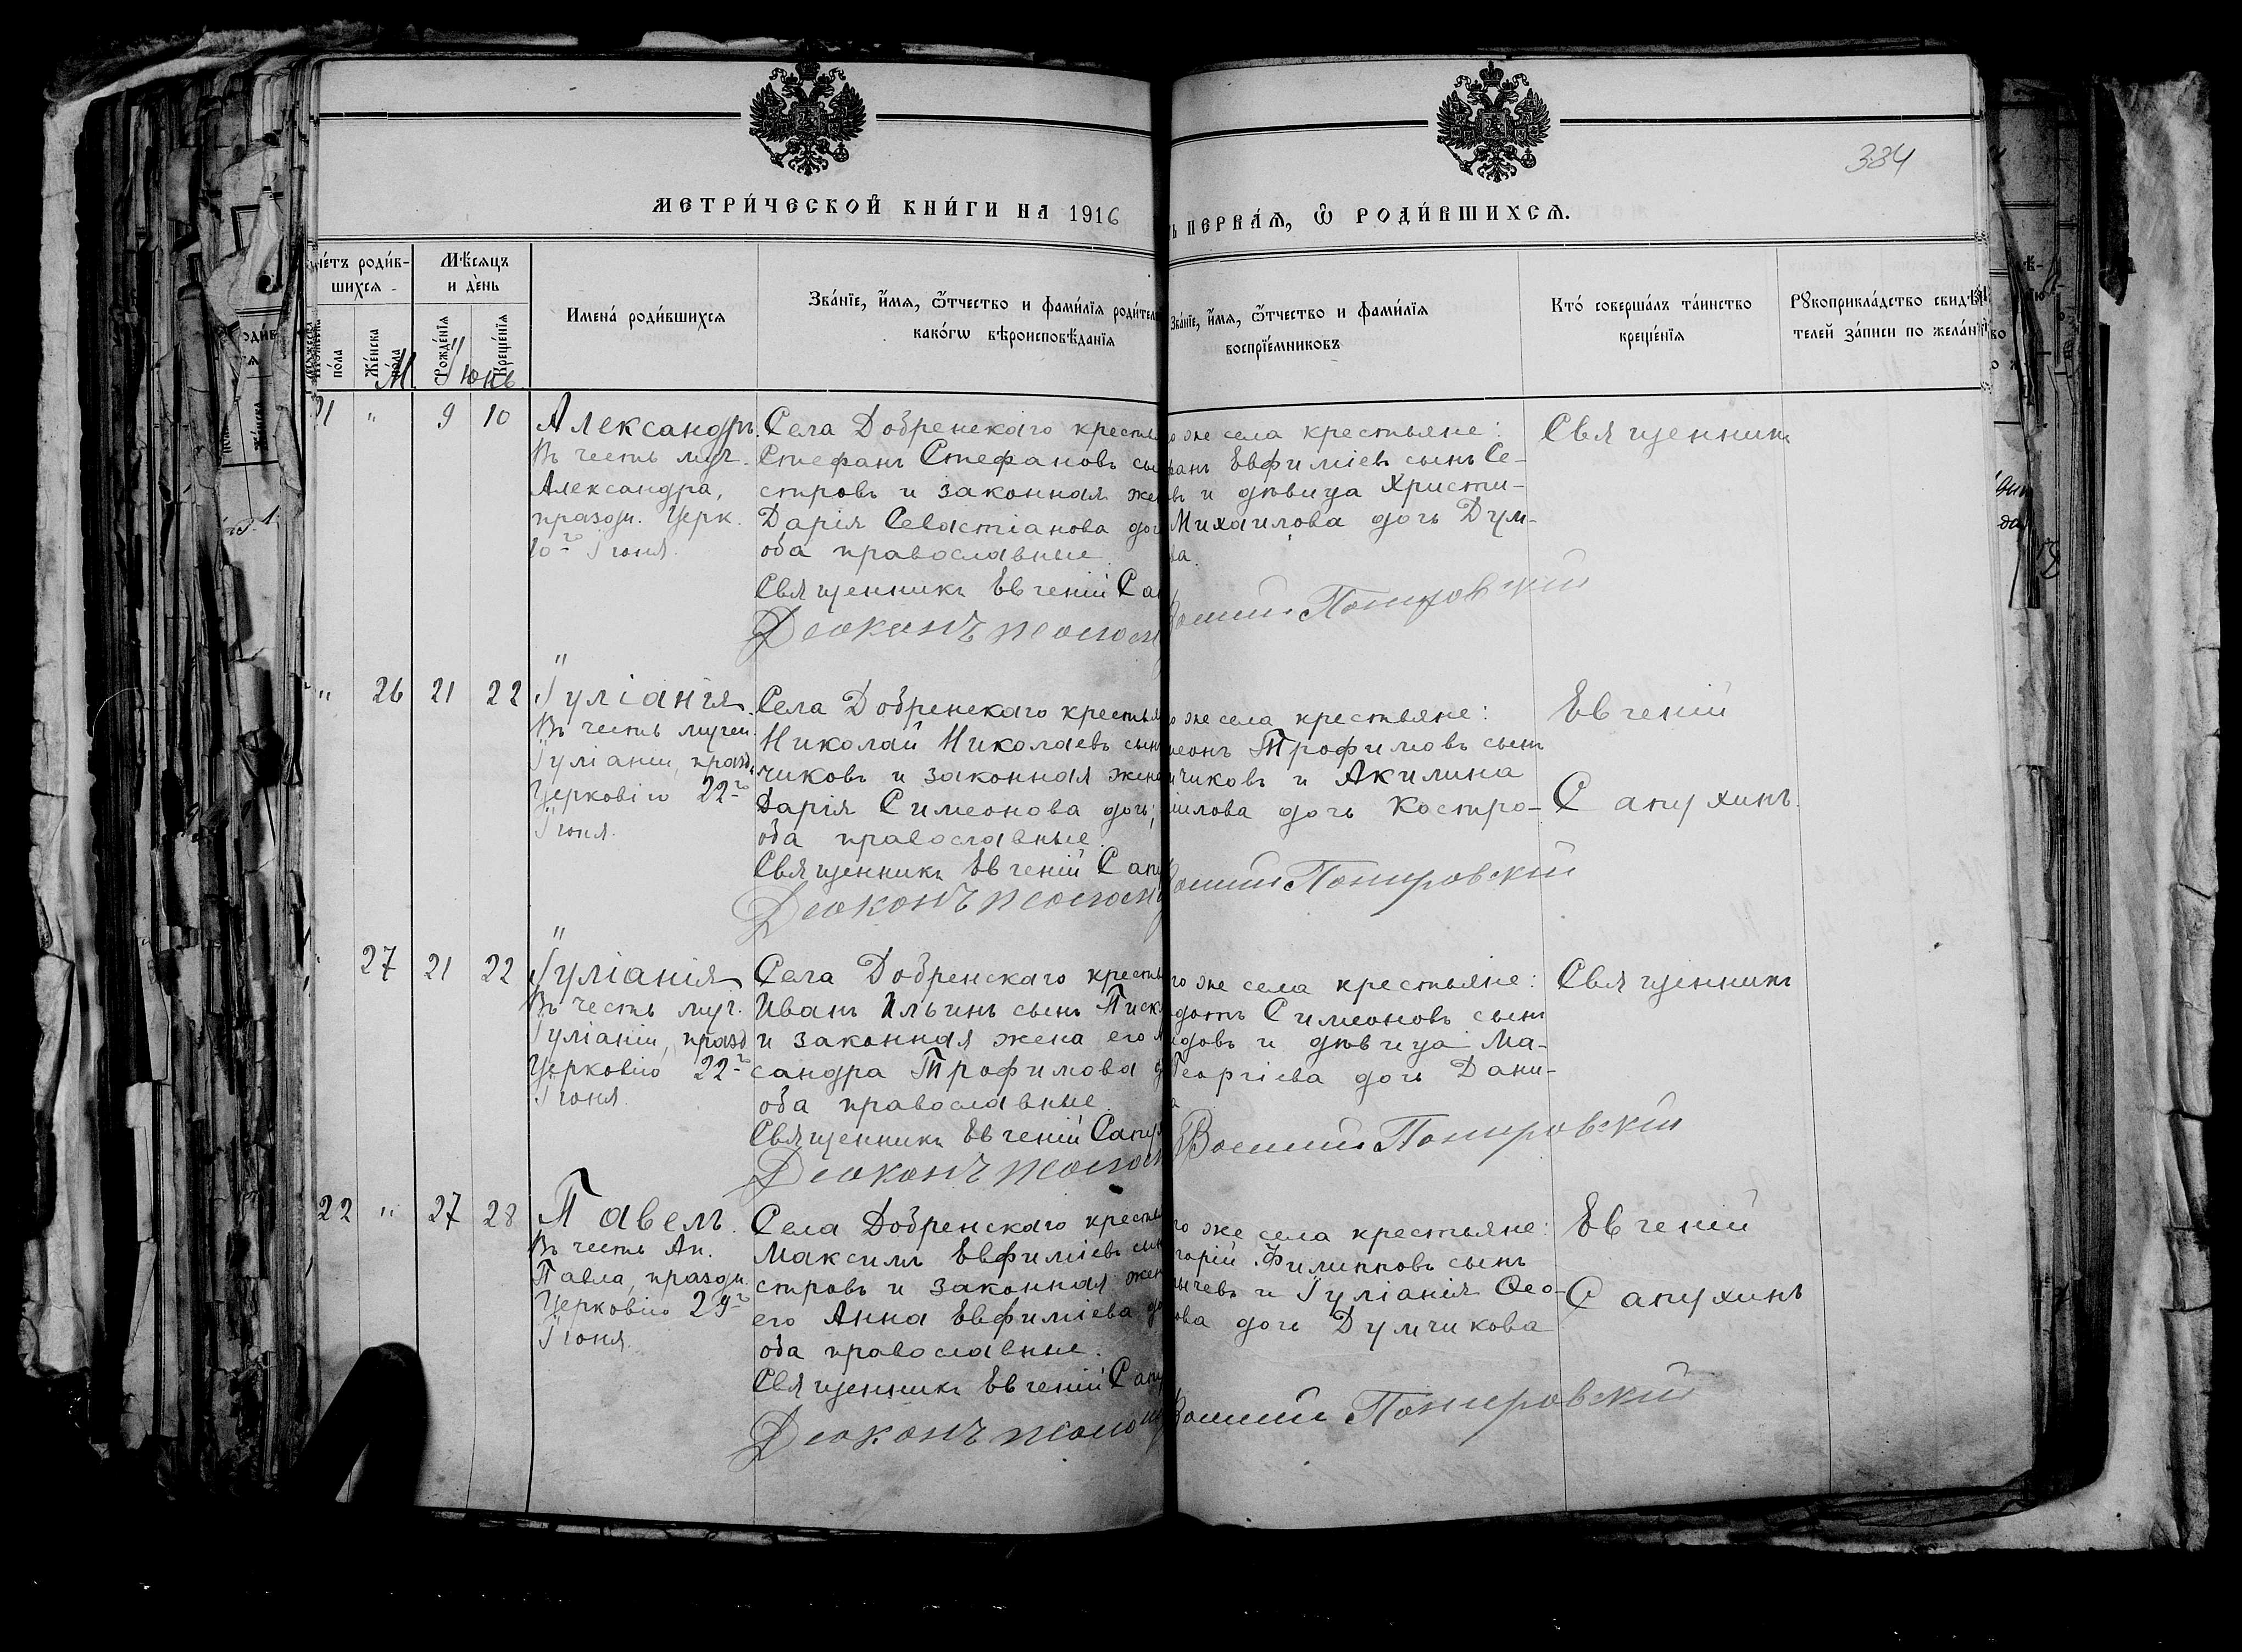 334
МЕТРИ́ЧЕСКОЙ КНИ́ГИ НА 1916
ПЕРВАѦ, Ѿ РОДИ́ВШИХСѦ.
роди́в-
шихсѧ
Мѣ́сѧцъ
и де́нь
Имена́ роди́вшихсѧ
Зва́нїе, и҆́мѧ, ѻ҆́тчество и фами́лїѧ родител
како́гѡ вѣроисповѣ́данїѧ
Зва́нїе, и҆́мѧ, ѻ҆́тчество и фами́лїѧ
воспрїе́мниковъ
Кто̀ соверша́лъ та́инство
креще́нїѧ
Рꙋкоприкла́дство свидѣ́-
телей за́писи по жела́н
по́ла
Же́нска
по́ла
Рожде́нїѧ
Креще́нїѧ
М. Іюнь
21 " 9 10
Александръ.
Въ честь муч.
Александра,
праздн. Церк.
10го Іюня.
Села Добренскаго кресть
Стефанъ Стефановъ сы
стровъ и законная же
Дарія Севастіанова до
оба православные.
Священникъ Евгеній Са
Діаконъ
же села крестьяне:
Евфиміевъ сынъ Се-
въ и дѣвица Христи-
Михаилова дочь Дум-
ва.
Понировскій
Священникъ
" 26 21 22
Іуліанія.
Въ честь мучен.
Іуліаніи, празд.
Церковію 22го
Іюня.
Села Добренскаго крестья
Николай Николаевъ сын
чиковъ и законная жена
Дарія Симеонова дочь;
оба православные.
Священникъ Евгеній Сап
Діаконъ
же села крестьяне:
Трофимовъ сынъ
чиковъ и Акилина
лова дочь Костро-
Понировскій
Евгеній
Сапухинъ.
27 21 22
Іуліанія
Въ честь муч.
Іуліаніи, празд
Церковію 22го
Іюня.
Села Добренскаго кресть
Иванъ Ильинъ сынъ Писк
и законная жена его
сандра Трофимова
оба православные.
Священникъ Евгеній Сапу
Діаконъ
го же села крестьяне:
Симеоновъ сынъ
довъ и дѣвица Ма-
Георгіева дочь Дани-
а
Понировскій
Священникъ
22 " 27 28
Павелъ.
Въ честь Ап.
Павла, праздн.
Церковію 29го
Іюня.
Села Добренскаго кресть
Максимъ Евфиміевъ сын
стровъ и законная жен
его Анна Евфиміева
оба православные.
Священникъ Евгеній Сап
Діаконъ
го же села крестьяне:
горій Филипповъ сынъ
ычевъ и Іуліанія Ѳео-
ова дочь Думчикова
Понировскій
Евгеній
Сапухинъ